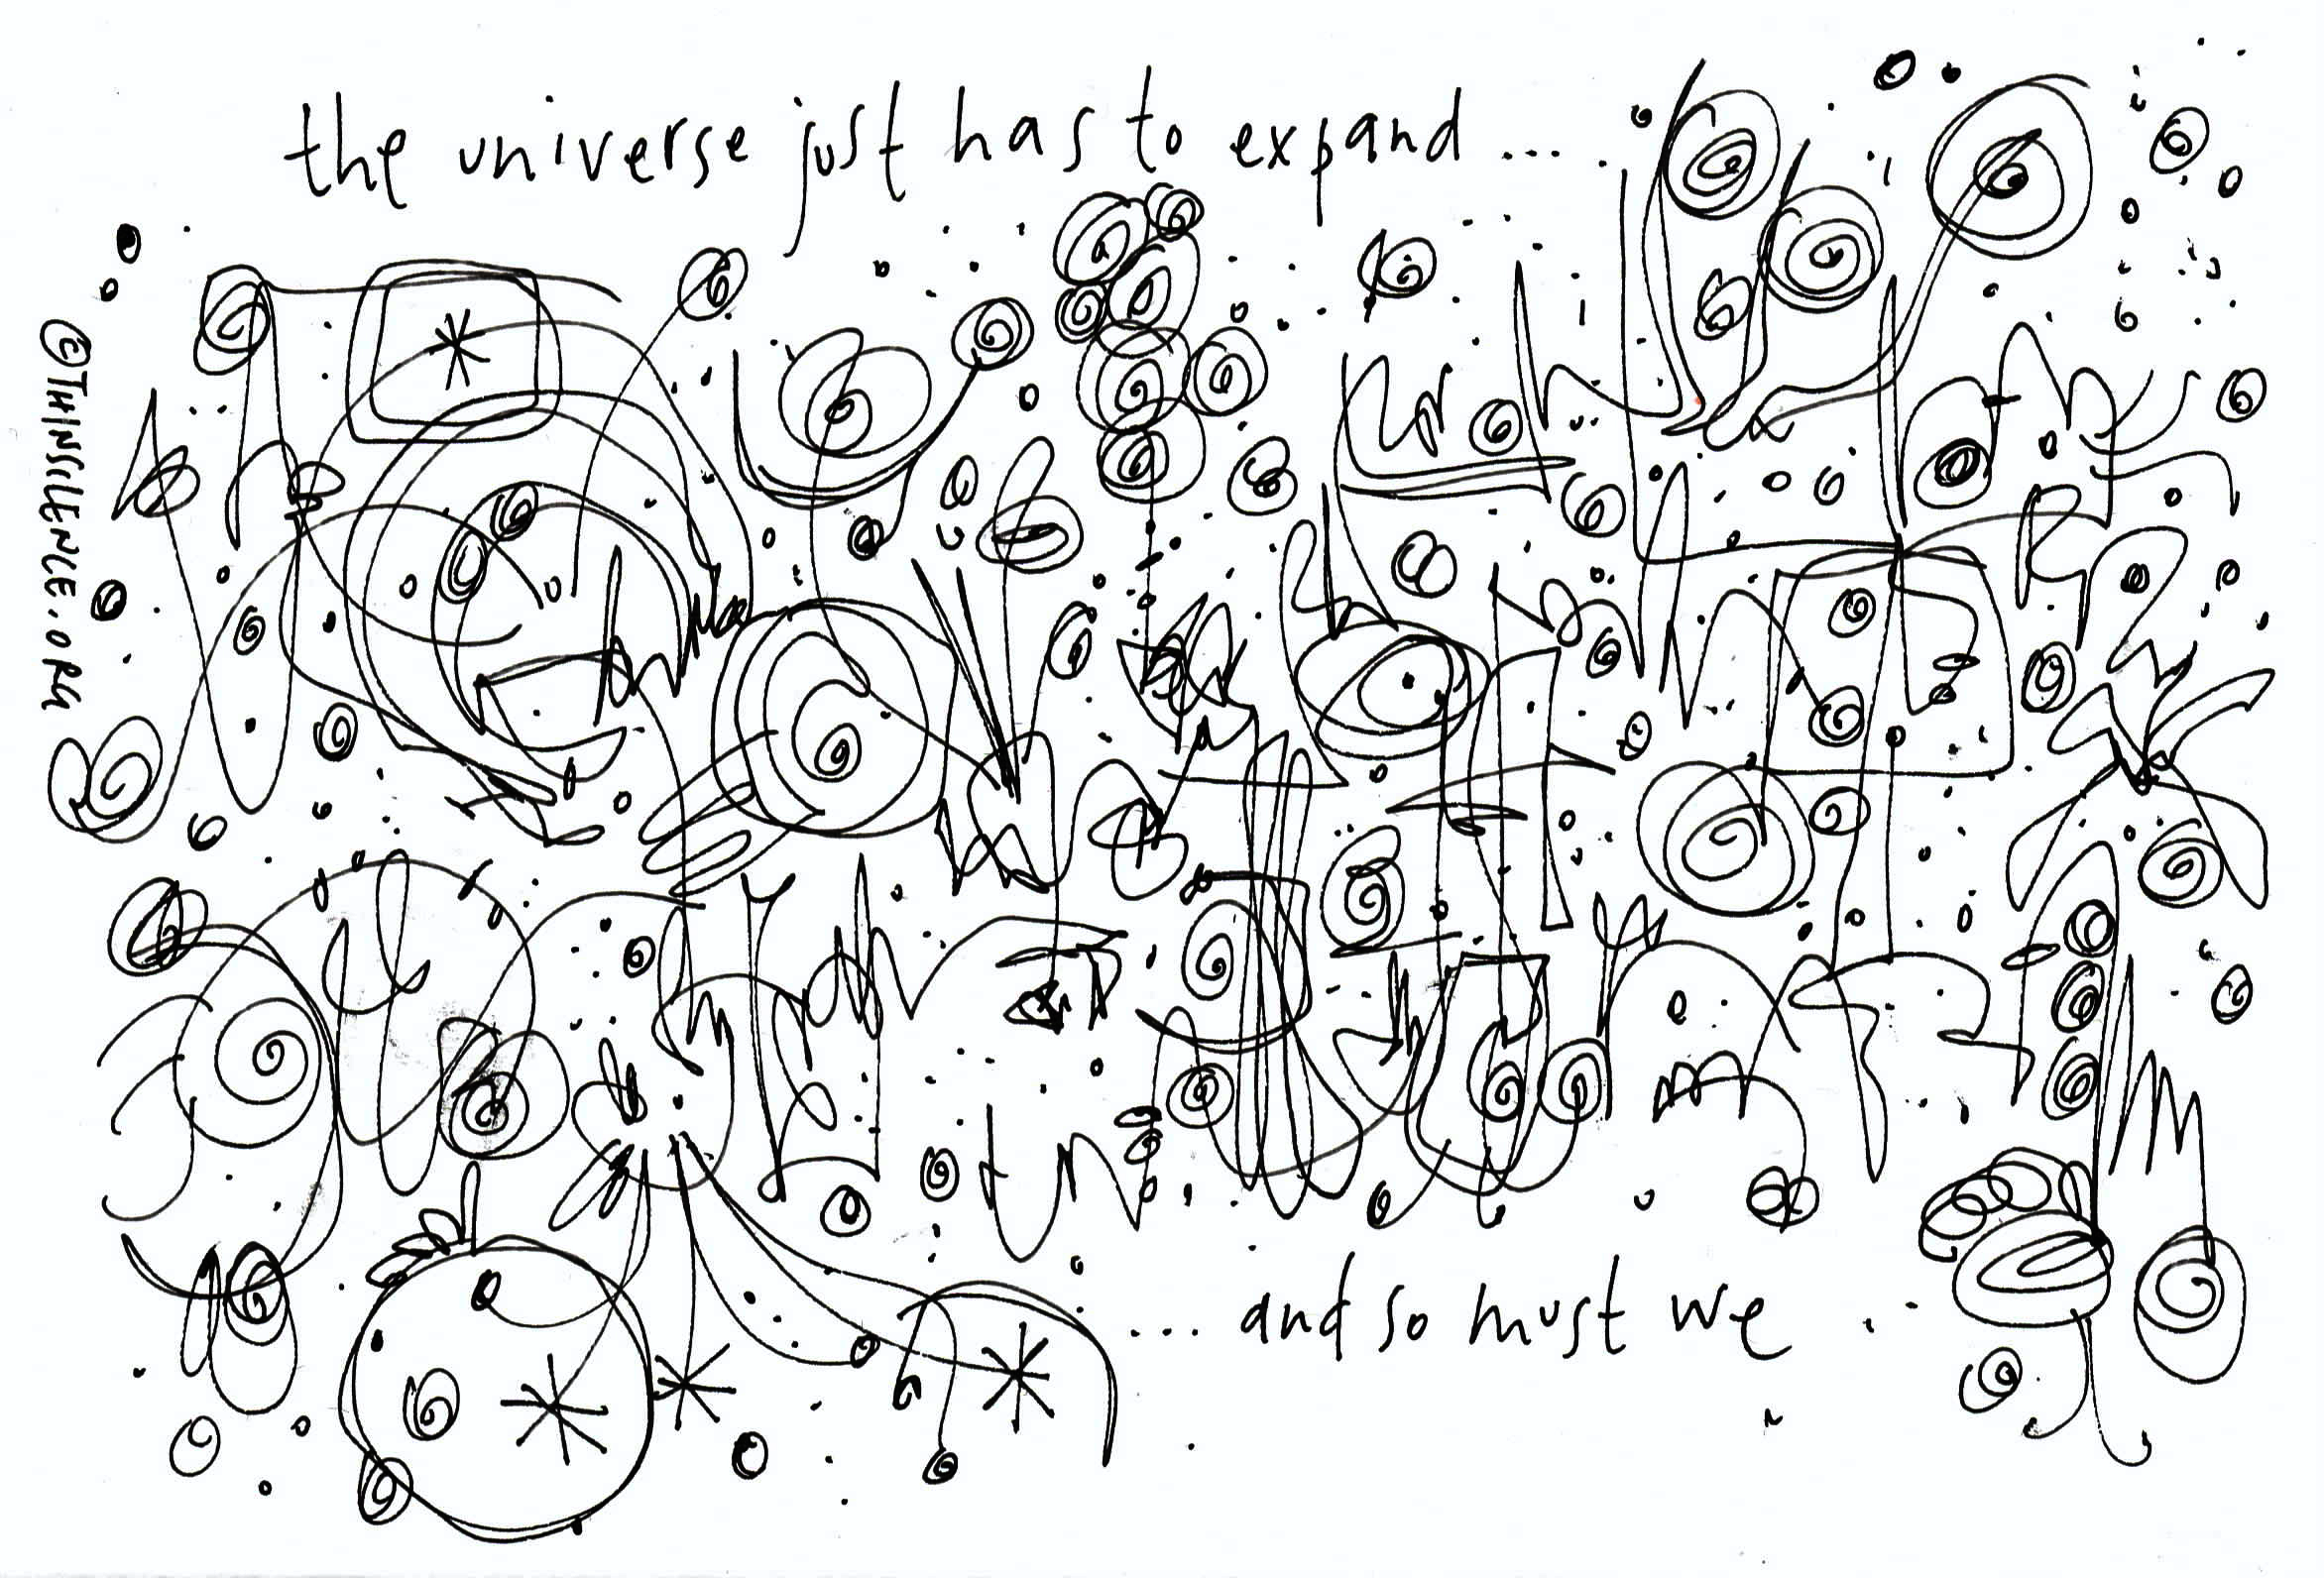 the universe just has to expand...
©THINSILENCE.ORG
... and so must we